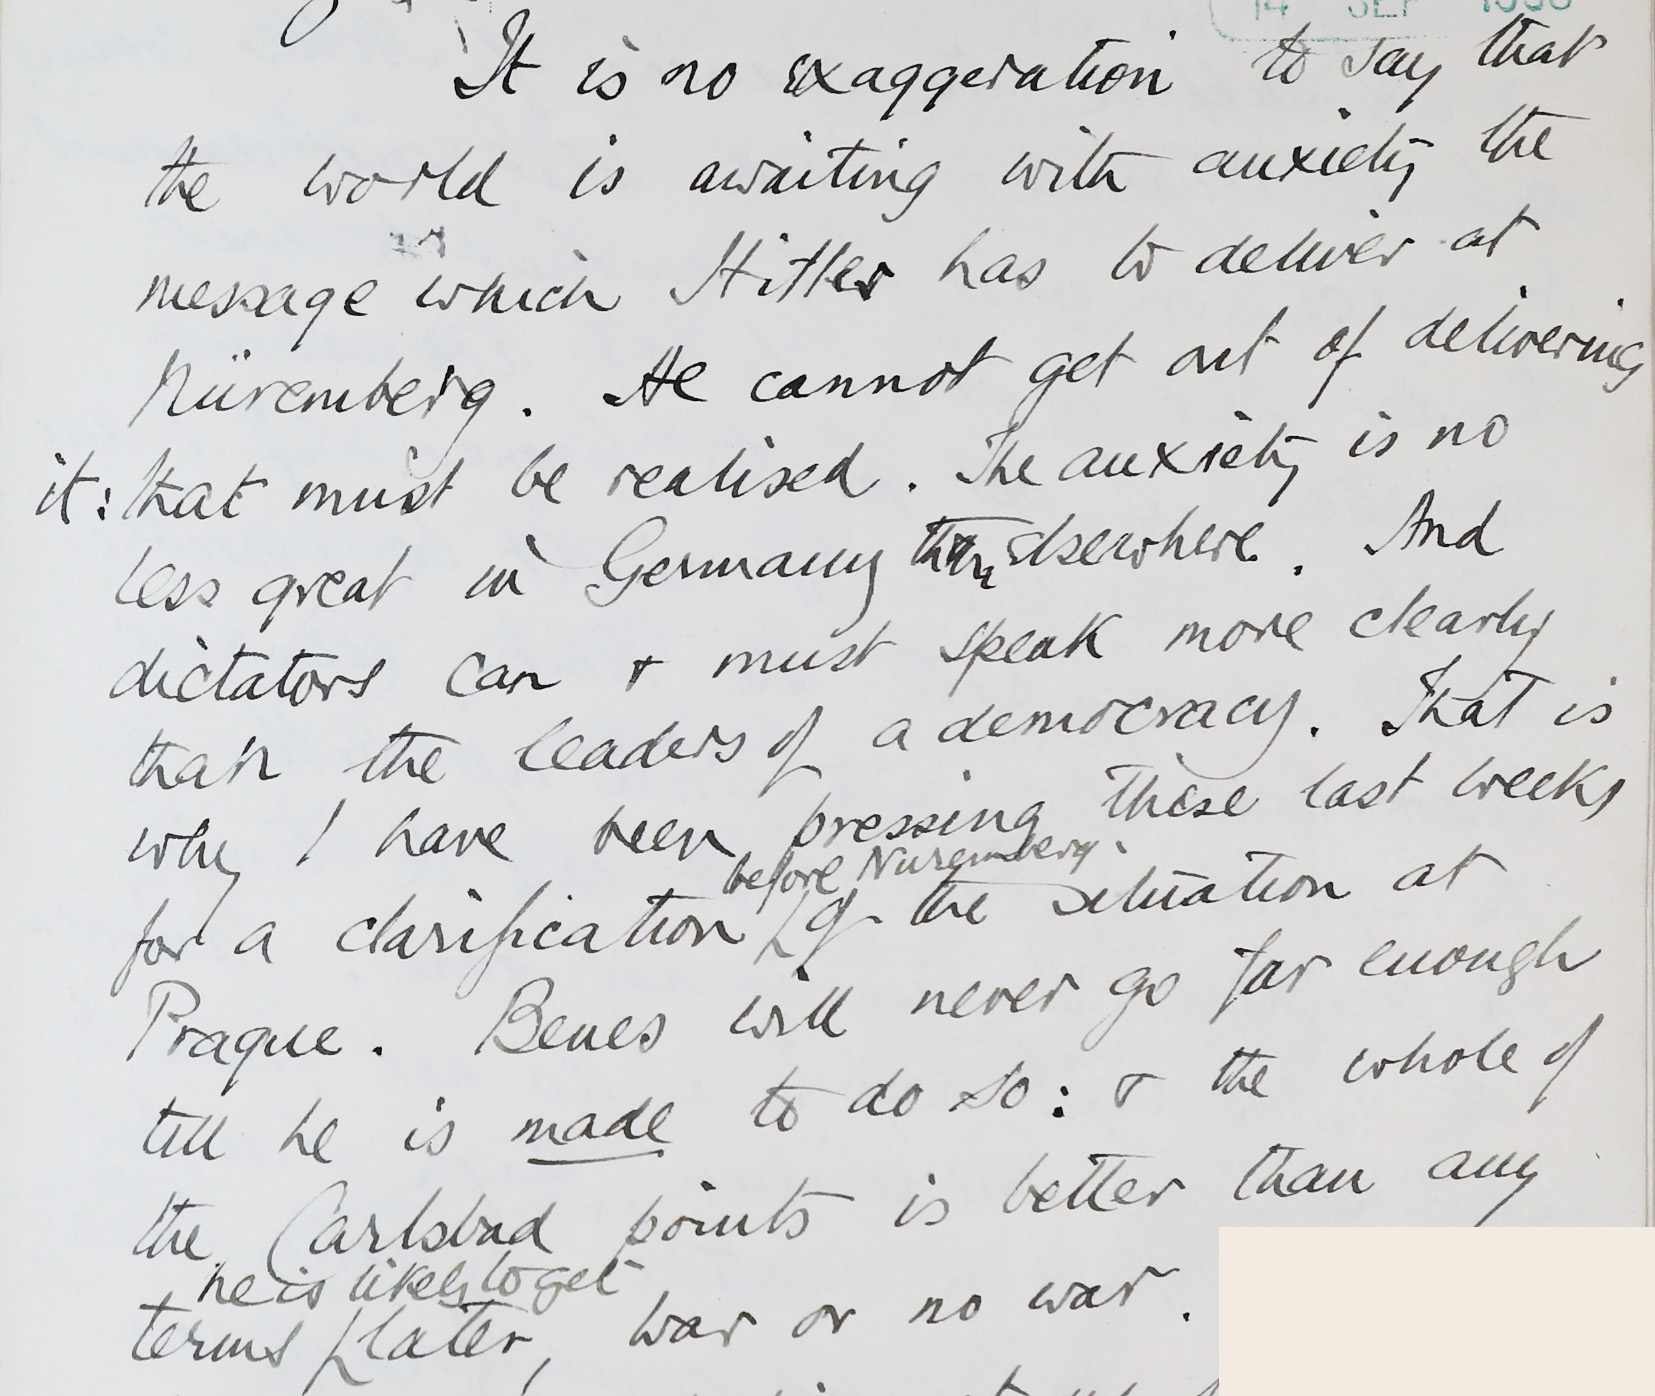 14 SEP 1938
It is no exaggeration to say that
the world is awaiting with anxiety the
message which Hitler has to deliver at
Nüremberg. He cannot get out of delivering
it: that must be realised. The anxiety is no
less great in Germany than elsewhere. And
dictators can & must speak more clearly
than the leaders of a democracy. That is
why I have been pressing these last weeks
before Nuremberg
for a clarification of the situation at
Prague. Benes will never go far enough
till he is made to do so: & the whole of
the Carlsbad points is better than any
he is likely to get
terms later, war or no war.